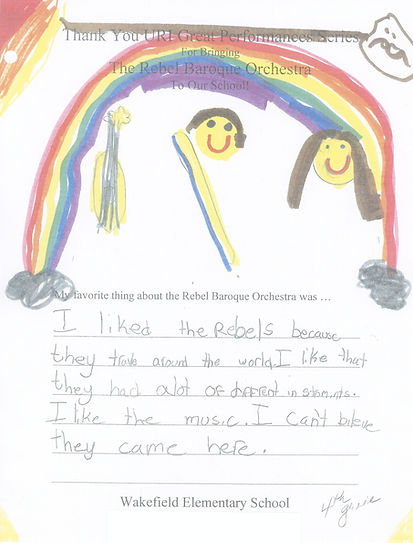 Thank You URI Great Performances Series
For Bringing
The Rebel Baroque Orchestra
To Our School!
My favorite thing about the Rebel Baroque Orchestra was ...
I liked the Rebels because
they travle around the world. I like that
they had alot of different instoments.
I like the music. I can't bileve
they came here.
Wakefield Elementary School
4th grade